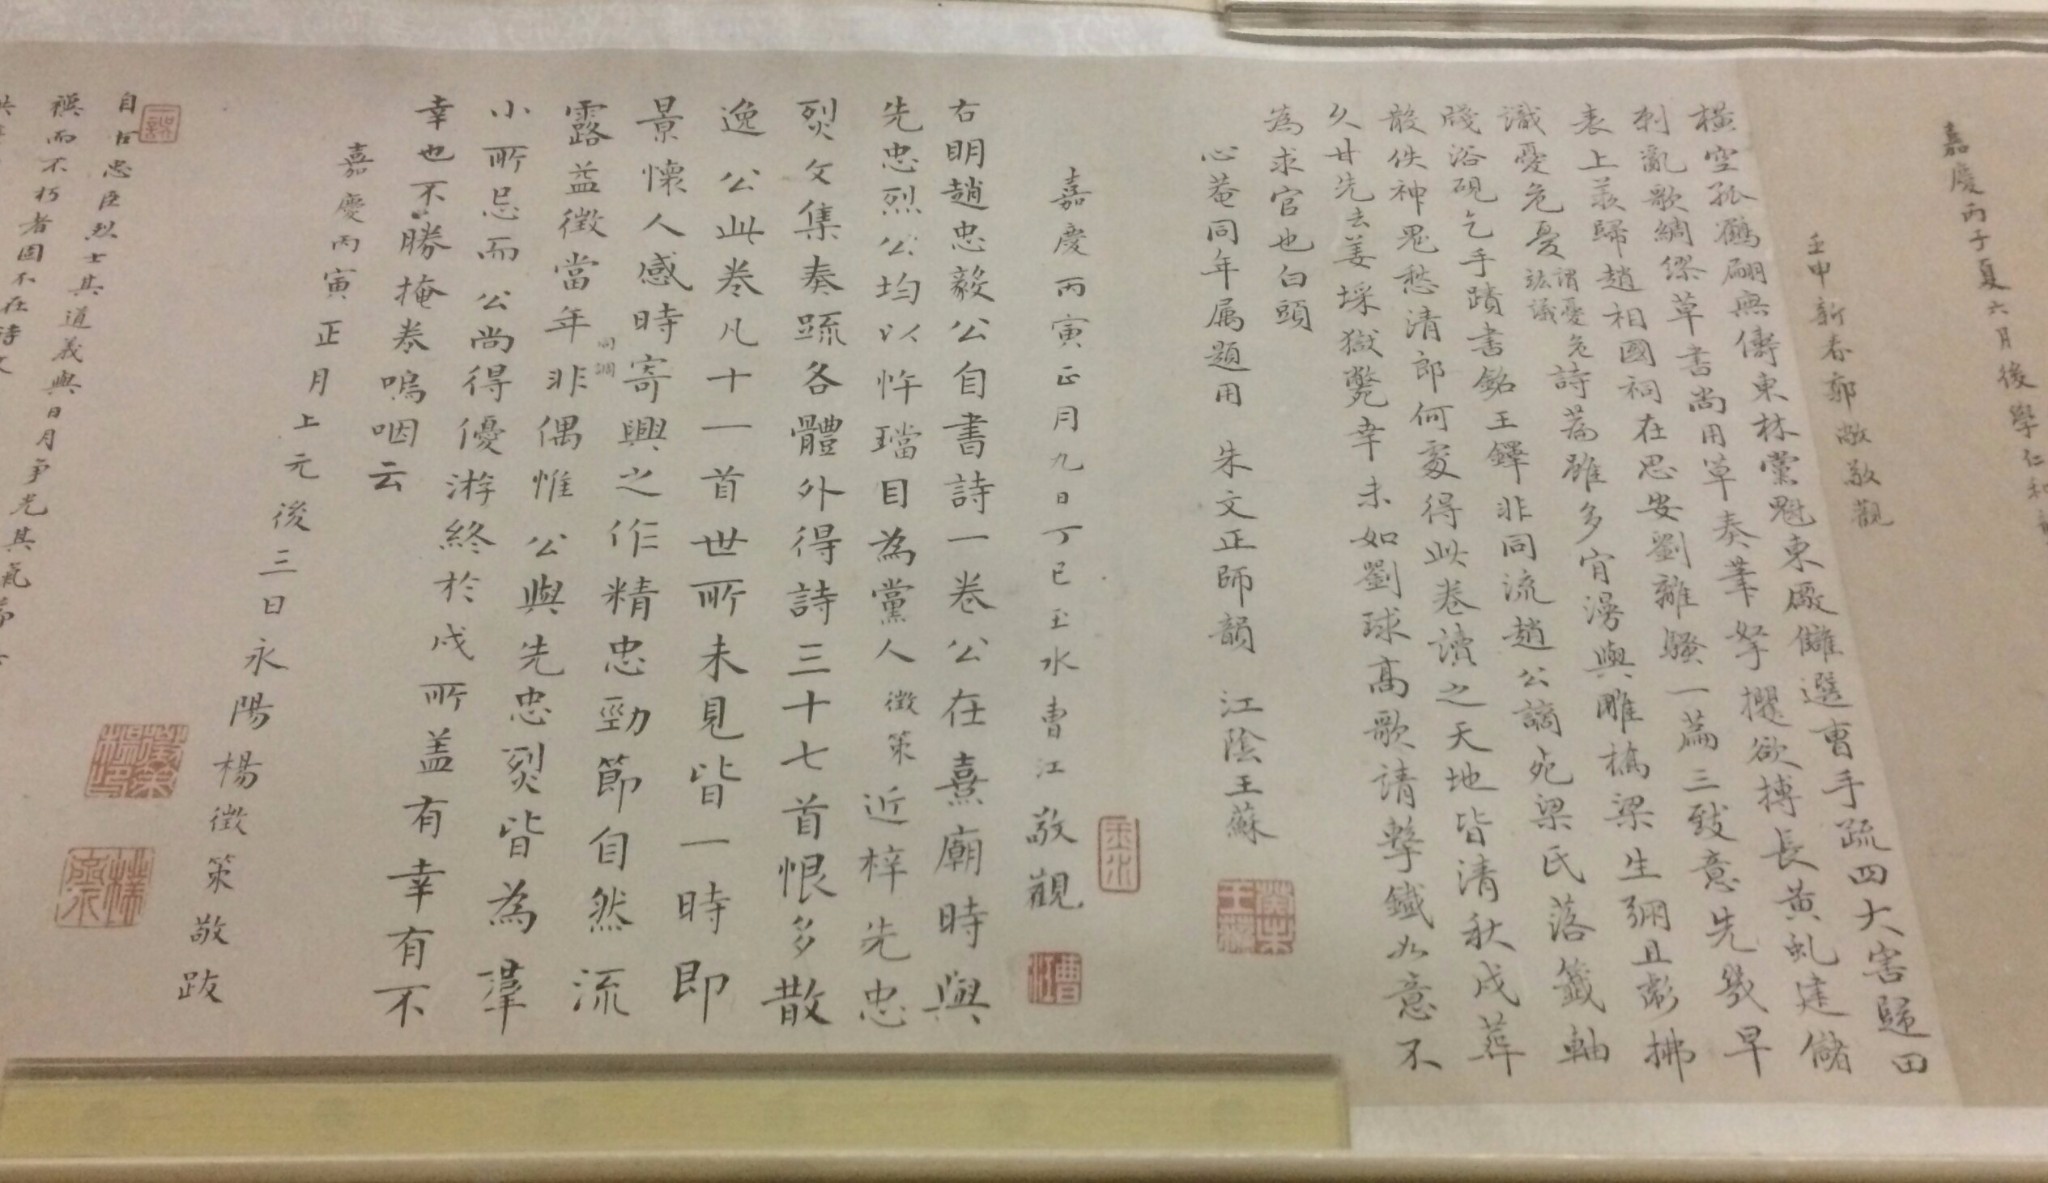 嘉慶丙子夏六月後學仁和
壬申新春郭敬觀
橫空孤鶴翮無儔東林黨魁東廠讎選曹手疏四大害歸田
刺亂歌綢繆草書尚用草奏筆拏攫欲搏長黃虬建儲
表上羨歸趙相國祠在思安劉離騷一篇三致意先幾早
識憂危憂詩篇雖多宵漫與雕檎梁生弼且彪拂
謂憂危
竑議
牋浴硯乞手蹟書銘王鐸非同流趙公謫死梁氏落籤軸
散佚神鬼愁清郎何處得此卷讀之天地皆清秋戍葬
久甘先去姜埰獄斃幸未如劉球高歌請擊鐵如意不
為求官也白頭
心菴同年屬題用 朱文正師韻 江陰王蘇
嘉慶丙寅正月九日丁巳玉水曹江敬觀
玉水
曹江
右明趙忠毅公自書詩一卷公在熹廟時與
先忠烈公均以忤璫目為黨人徵策近梓先忠
烈文集奏疏各體外得詩三十七首恨多散
逸公此卷凡十一首世所未見皆一時即
景懷人感時寄興之作精忠勁節自然流
露益徵當年非偶惟公與先忠烈皆為羣
同調
小所忌而公尚得優游終於戍所蓋有幸有不
幸也不勝掩卷嗚咽云
嘉慶丙寅正月上元後三日永陽楊徵策敬跋
自古忠臣烈士其道義與日月爭光其氣
禩而不朽者固不在詩文